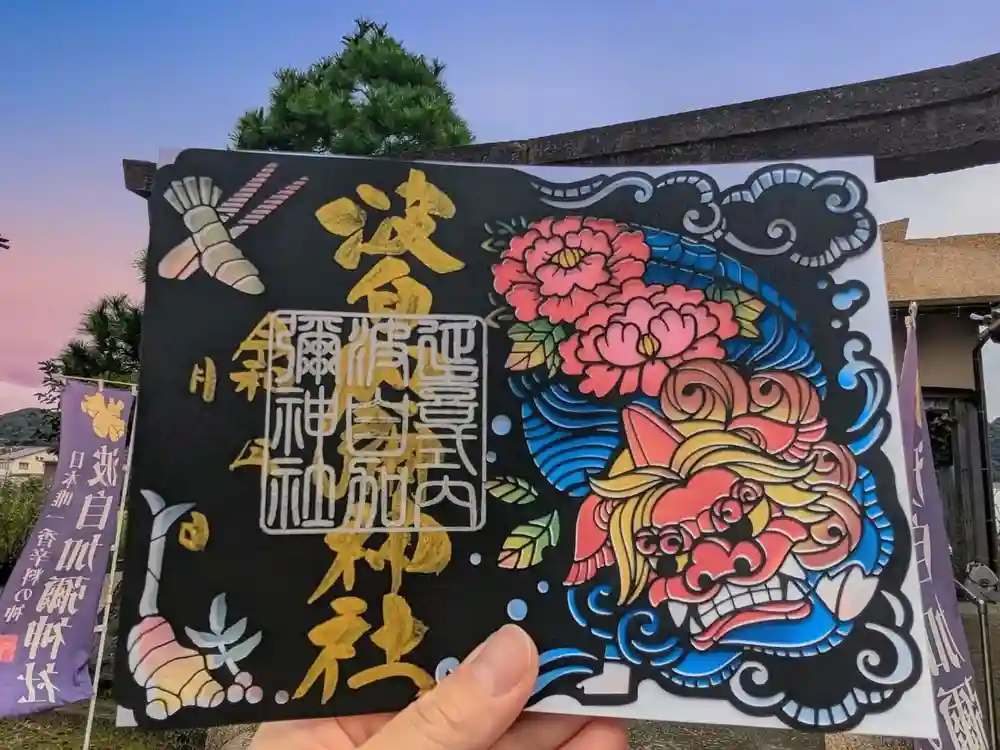 波自加彌神社
令和五
月
日
延喜式内
波自加
彌神社
波自加彌神社
日本唯一香辛料の神
自加彌